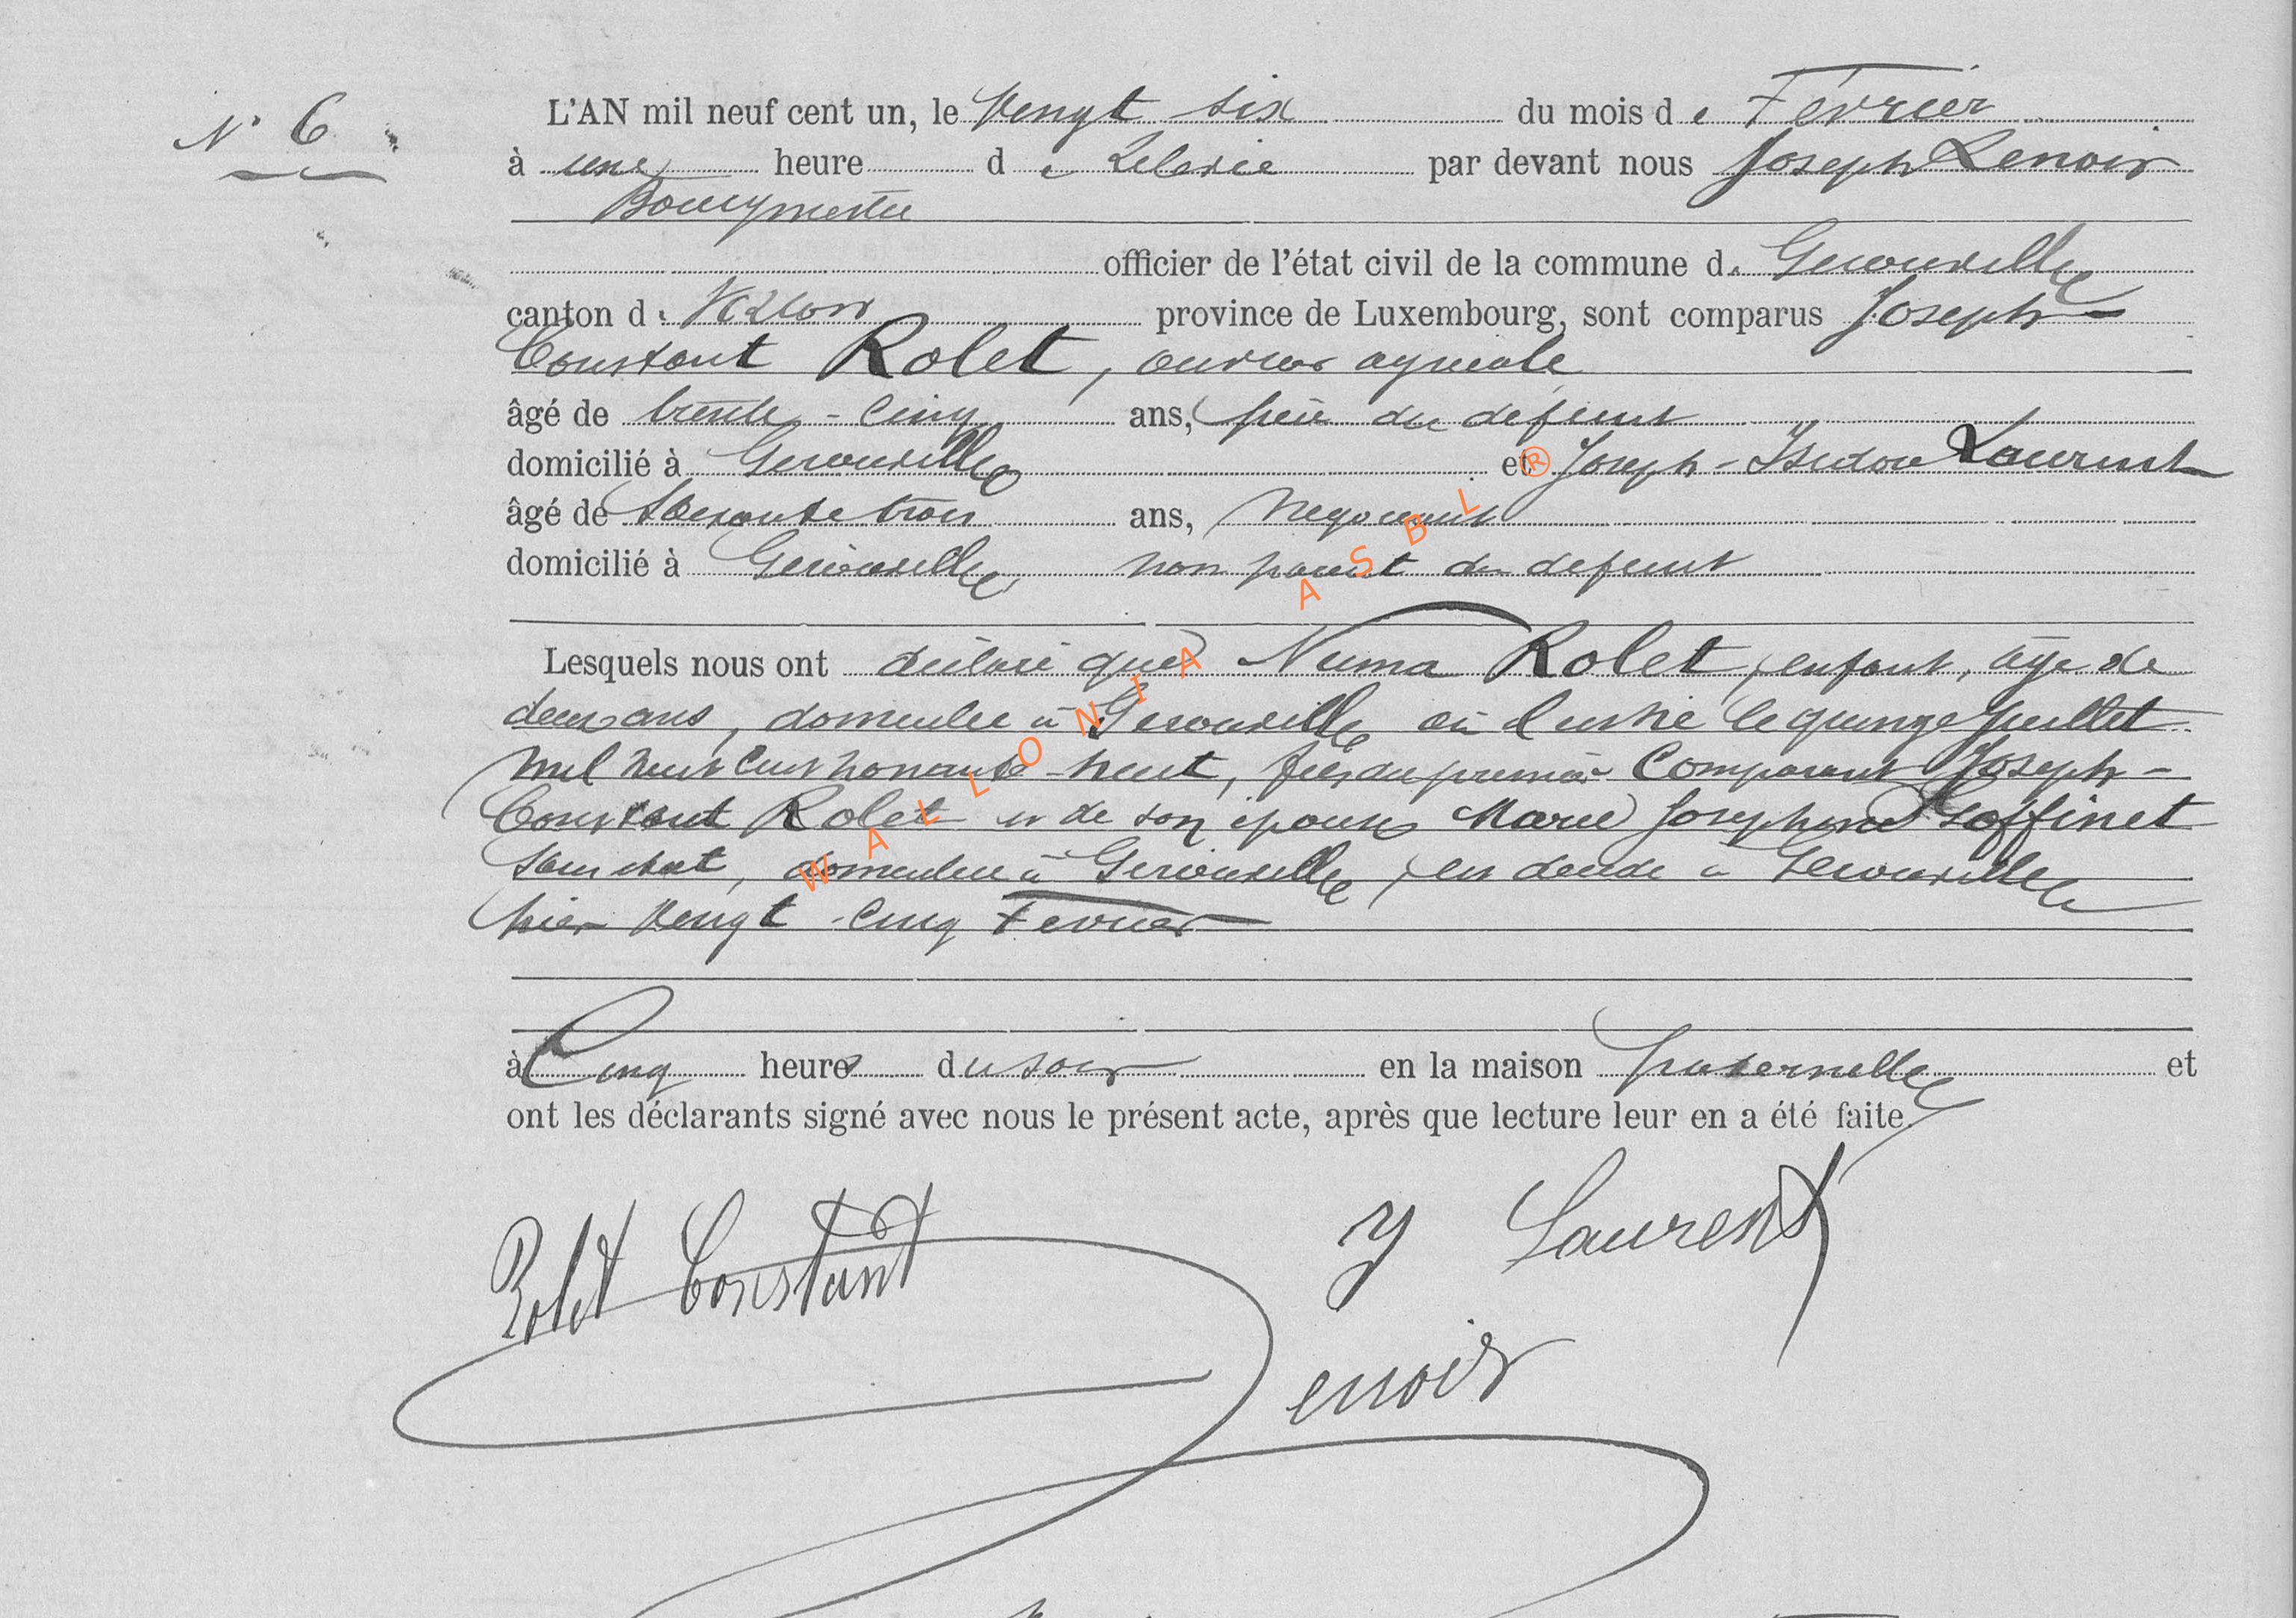 N° 6
L'AN mil neuf cent un, le Vingt six du mois de Février
à une heure de Relevée par devant nous Joseph Lenoir
Bourgmestre
officier de l'état civil de la commune de Gerouville
canton de Virton province de Luxembourg, sont comparus Joseph-
Constant Rolet, ouvrier agricole
âgé de trente-cinq ans, père du defunt
domicilié à Gerouville et Joseph-Isidore Laurent
âgé de Soixante trois ans, Negociant
domicilié à Gerouville, non parent du defunt
Lesquels nous ont déclaré que Numa Rolet, enfant, âgé de
deux ans, domicilié à Gerouville où il est né le quinze Juillet
mil huit cent nonante-neuf, fils du premier Comparant Joseph-
Constant Rolet et de son épouse Marie Josephine Goffinet
sans état, domiciliée à Gerouville, est décédé à Gerouville
hier Vingt-cinq Fevrier
à Cinq heures du soir en la maison paternelle et
ont les déclarants signé avec nous le présent acte, après que lecture leur en a été faite.
Rolet Constant J Laurent
Lenoir
WALLONIA ASBL ®